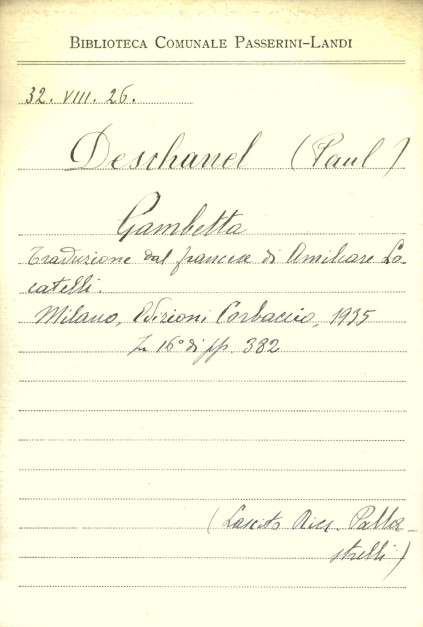 BIBLIOTECA COMUNALE PASSERINI-LANDI
32. VIII. 26.
Deschanel (Paul)
Gambetta
Traduzione dal francese di Amilcare Lo-
catelli.
Milano, Edizioni Corbaccio, 1935
In 16° di pp. 382
(Lascito Ricc. Palla-
strelli)